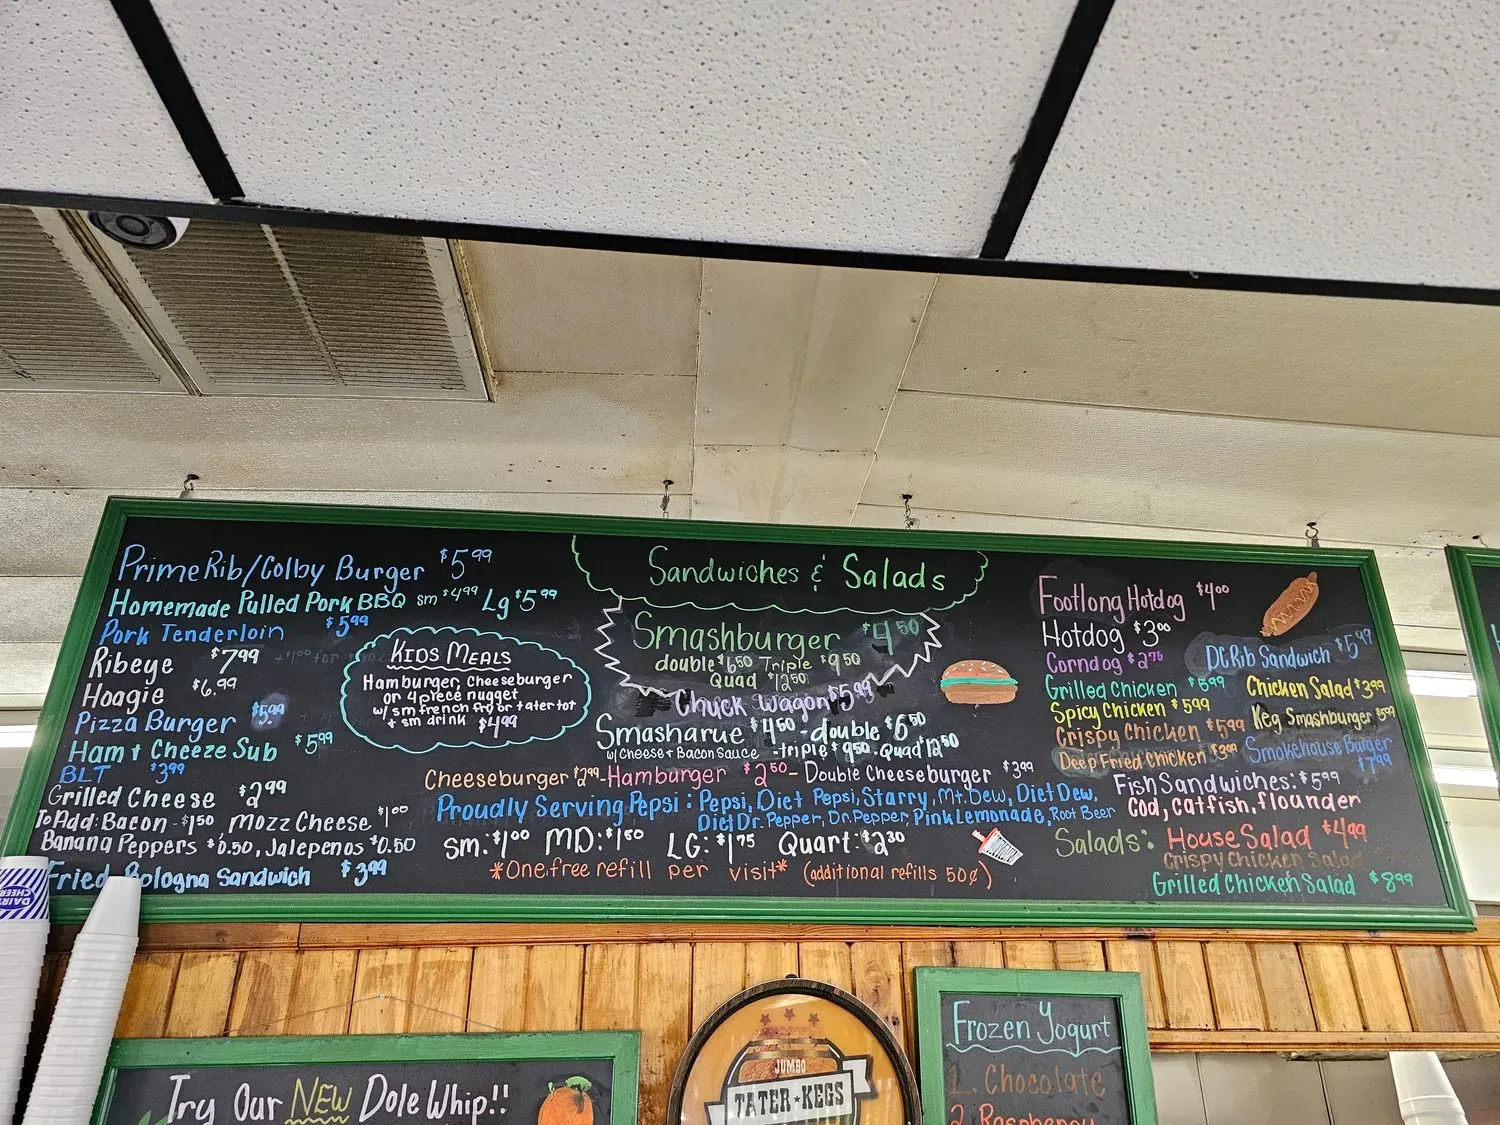 Sandwiches & Salads
Prime Rib/Colby Burger $5.99
Homemade Pulled Pork BBQ sm $4.99 Lg $5.99
Pork Tenderloin $5.99
Ribeye $7.99
Hoagie $6.99
Pizza Burger $5.99
Ham + Cheeze Sub $5.99
BLT $3.99
Grilled Cheese $2.99
To Add: Bacon - $1.50, Mozz Cheese $1.00
Banana Peppers $0.50, Jalepenos $0.50
Fried Bologna Sandwich $3.99
Kids Meals
Hamburger, Cheeseburger
or 4 piece nugget
w/ sm french fry or tater tot
+ sm drink $4.99
Smashburger $4.50
double $6.50 Triple $9.50
Quad $12.50
Chuck Wagon $5.99
Smasharue $4.50 - double $6.50
w/ Cheese + Bacon Sauce - triple $9.50 - Quad $12.50
Cheeseburger $2.99 - Hamburger $2.50 - Double Cheeseburger $3.99
Proudly Serving Pepsi: Pepsi, Diet Pepsi, Starry, Mt. Dew, Diet Dew,
Diet Dr. Pepper, Dr. Pepper, Pink Lemonade, Root Beer
Sm: $1.00 MD: $1.50 LG: $1.75 Quart: $2.30
*One free refill per visit* (additional refills 50¢)
Footlong Hotdog $4.00
Hotdog $3.00
Corndog $2.75
Grilled Chicken $5.99
Spicy Chicken $5.99
Crispy Chicken $5.99
Deep Fried Chicken $3.09
DC Rib Sandwich $5.99
Chicken Salad $3.99
Keg Smashburger $5.99
Smokehouse Burger
$7.99
Fish Sandwiches: $5.99
Cod, catfish, flounder
Salads: House Salad $4.99
Crispy Chicken Salad
Grilled Chicken Salad $8.99
DAIRY
CHEER
Try Our NEW Dole Whip!!
JUMBO
TATER KEGS
Frozen Yogurt
1. Chocolate
2. Raspberry